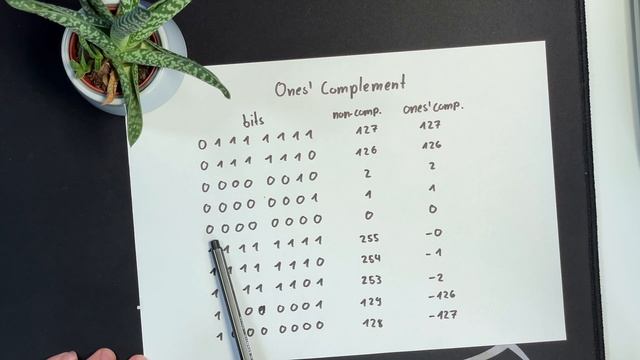 Ones' Complement
bits non-comp. ones' comp.
0 1 1 1 1 1 1 1 127 127
0 1 1 1 1 1 1 0 126 126
0 0 0 0 0 0 1 0 2 2
0 0 0 0 0 0 0 1 1 1
0 0 0 0 0 0 0 0 0 0
1 1 1 1 1 1 1 255 -0
1 1 1 1 1 1 0 254 -1
1 1 1 1 1 0 1 253 -2
1 0 0 0 0 0 1 129 -126
1 0 0 0 0 0 0 128 -127